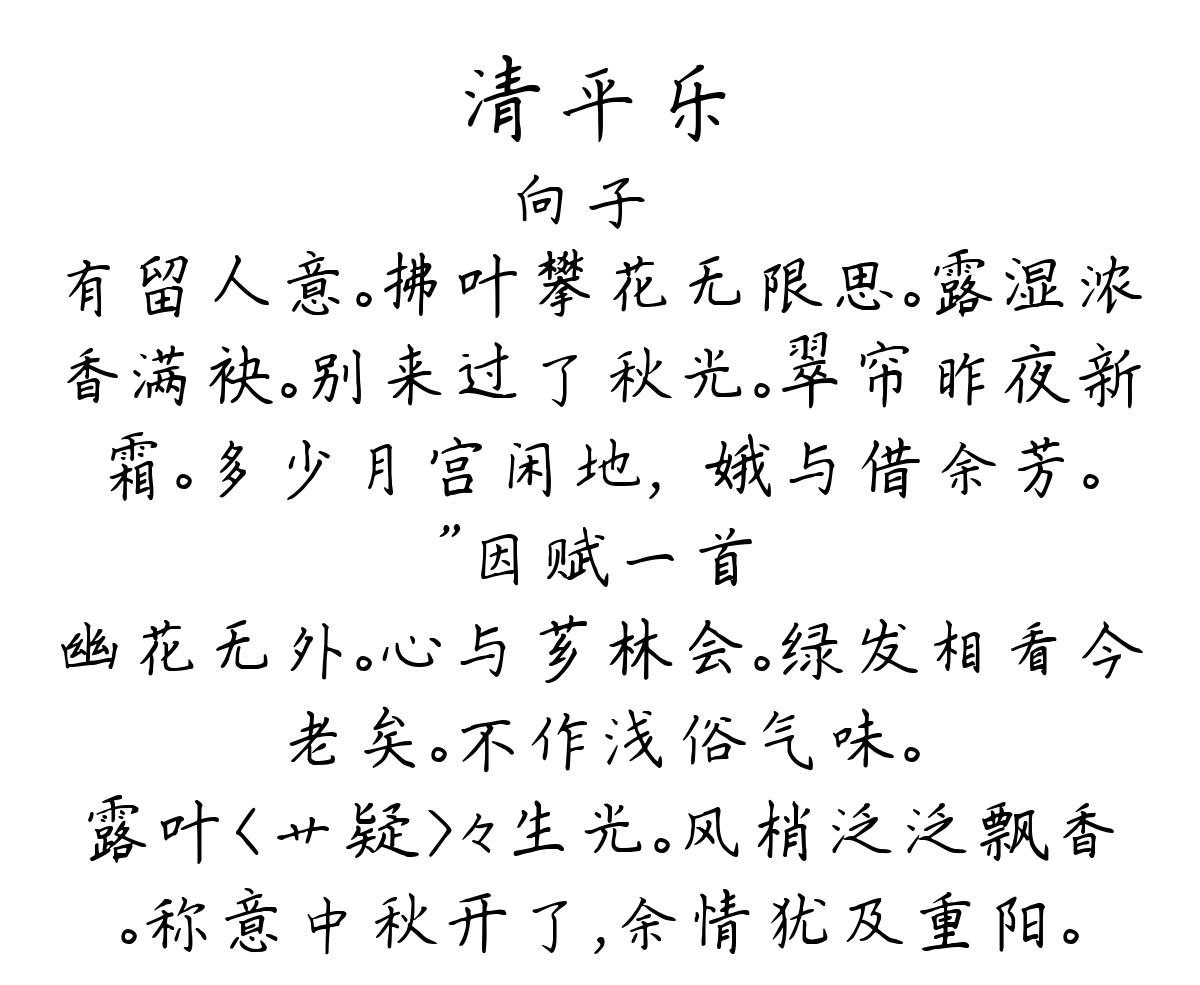 清平乐
向子
有留人意。拂叶攀花无限思。露湿浓
香满袂。别来过了秋光。翠帘昨夜新
霜。多少月宫闲地，娥与借余芳。
”因赋一首
幽花无外。心与芗林会。绿发相看今
老矣。不作浅俗气味。
露叶〈艹疑〉々生光。风梢泛泛飘香
。称意中秋开了，余情犹及重阳。